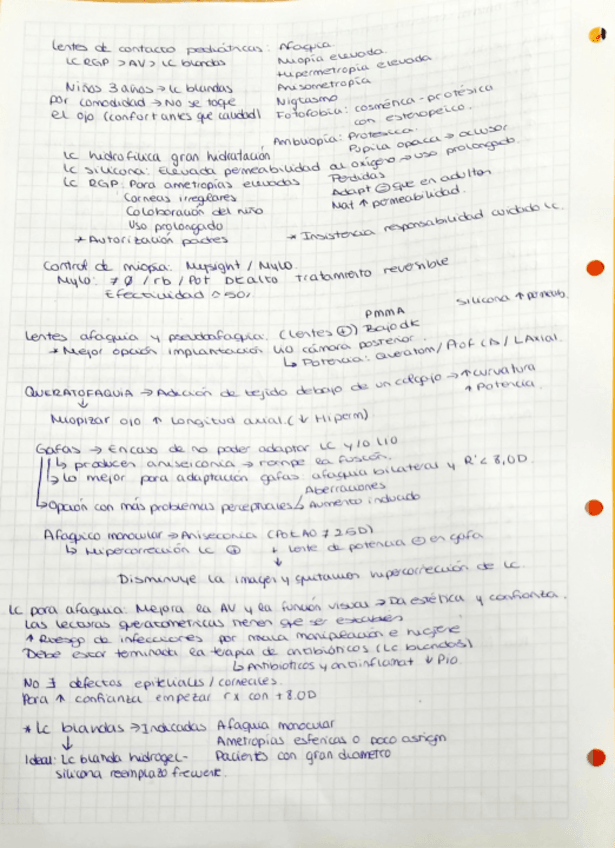 Lentes de contacto pediátricas: Afaquia.
LC RGP > AV > LC blandas
Miopía elevada.
Hipermetropía elevada
Anisometropía
Niños 3 años → LC blandas
por comodidad → No se toque
el ojo (confort antes que calidad)
Nigtasmo
Fotofobia: cosmética - protésica
con estenopeico.
Ambuopía: Protésica.
Pupila opaca → oclusor
LC hidrofílica gran hidratación
LC silicona: Elevada permeabilidad al oxígeno → uso prolongado.
LC RGP: Para ametropías elevadas
Perdidas
Corneas irregulares
Adapt ⊖ que en adultos
Coloboración del niño
Mat ↑ permeabilidad.
Uso prolongado
* Autorización padres
* Insistencia responsabilidad cuidado LC.
Control de miopía: Mysight / Mylo.
Mylo: ≠ Ø / rb / Pot DK alto tratamiento reversible
Efectividad
PMMA
silicona ↑ permeab.
Lentes afaquia y pseudoafaquia. (Lentes ⊕) Bajo dk
* Mejor opción implantación LIO cámara posterior
↳ Potencia: Queratom / Prof CA / L Axial.
QUERATOFAQUIA → Adición de tejido debajo de un colgajo → ↑ curvatura
↑ Potencia
↓
Miopizar ojo ↑ Longitud axial. (↓ Hiperm)
Gafas → En caso de no poder adaptar LC y/o LIO
↳ producen aniseiconia → rompe la fusión.
↳ Lo mejor para adaptación gafas afaquia bilateral y R < 8,0D.
Aberraciones
↳ Opción con más problemas perceptuales ↳ Aumento inducido
Afáquico monocular → Aniseconia (Pot AO ≠ 25D)
↳ Hipercorrección LC ⊕ + lente de potencia ⊖ en gafa
↓
Disminuye la imagen y quitamos hipercorrección de LC.
LC para afaquia: Mejora la AV y la función visual → Da estética y confianza.
Las lecturas queratometricas tienen que ser estables
↑ Riesgo de infecciones por mala manipulación e higiene
Debe estar terminada la terapia de antibióticos (LC blandas)
↳ Antibioticos y antiinflamat ↓ PIO
No ∃ defectos epiteliales / corneales.
Para ↑ confianza empezar rx con +8.0D
* LC blandas → Indicadas Afaquia monocular
↓
Ametropías esfericas o poco astigm
Ideal: LC blanda hidrogel-
Pacientes con gran diametro
silicona reemplazo frewente.